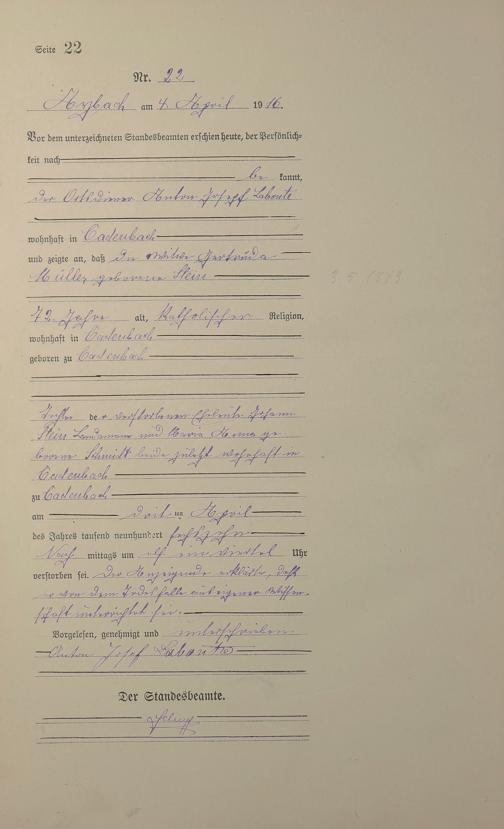 Seite 22
Nr. 22
Arzbach am 4. April 1916.
Vor dem unterzeichneten Standesbeamten erschien heute, der Persönlich-
keit nach
be kannt,
der Ortsdiener Anton Josef Labonte
wohnhaft in Cadenbach
und zeigte an, daß die Witwe Gertruda
Müller geborene Stein
72 Jahre alt, katholischer Religion,
wohnhaft in Cadenbach
geboren zu Cadenbach
Tochter der verstorbenen Eheleute Johann
Stein Landmann und Maria Anna ge
borene Schmidt beide zuletzt wohnhaft in
Cadenbach
zu Cadenbach
am dritten April
des Jahres tausend neunhundert sechszehn
Nach mittags um elf ein viertel Uhr
verstorben sei. Der Anzeigende erklärte, daß
er von dem Todesfalle aus eigener Wissen-
schaft unterrichtet sei.
Vorgelesen, genehmigt und unterschrieben
Anton Josef Labonte
Der Standesbeamte.